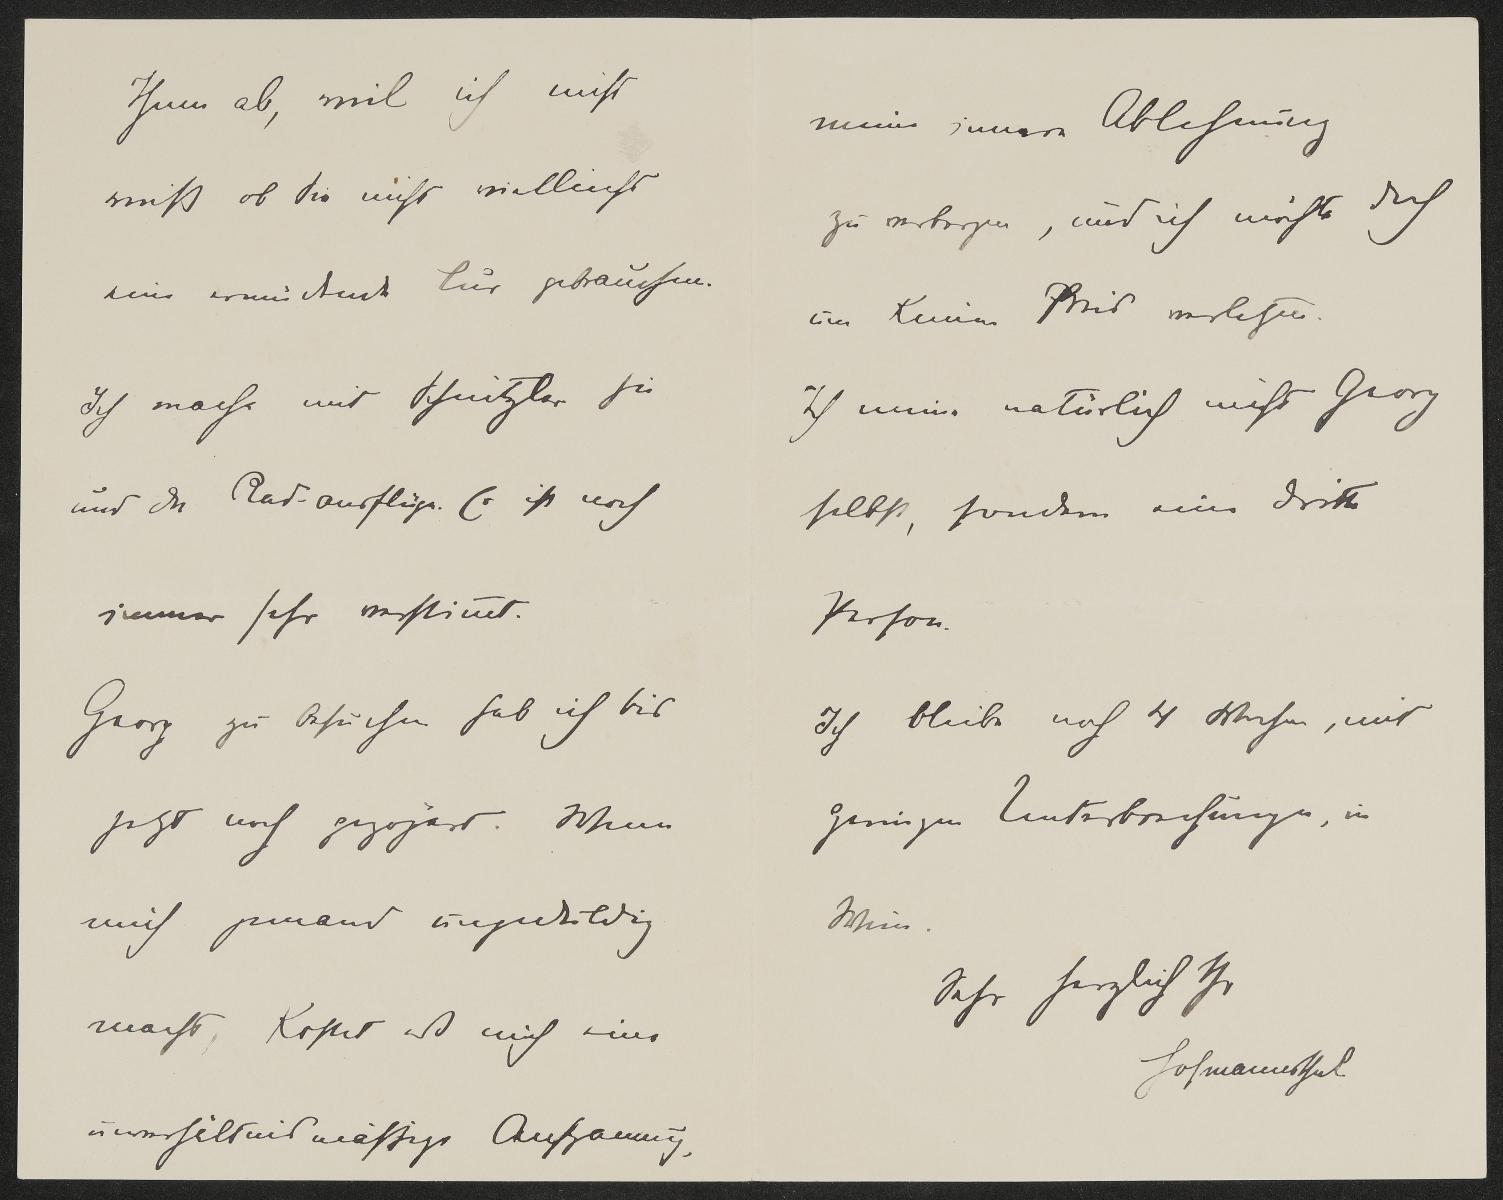 Ihnen ab, weil ich nicht
weiß ob Sie nicht vielleicht
eine ermüdende Cur gebrauchen.
Ich mache mit Schnitzler hie
und da Rad-ausflüge. Er ist noch
immer sehr verstimt.
Georg zu besuchen hab ich bis
jetzt noch gezögert. Wenn
mich jemand ungeduldig
macht, kostet es mich eine
unverhältnismäßige Anspannung,
meine innere Ablehnung
zu verbergen, und ich möchte doch
um keinen Preis verletzen.
Ich meine natürlich nicht Georg
selbst, sondern eine dritte
Person.
Ich bleibe noch 4 Wochen, mit
geringen Unterbrechungen, in
Wien.
Sehr herzlich Ihr
Hofmannsthal